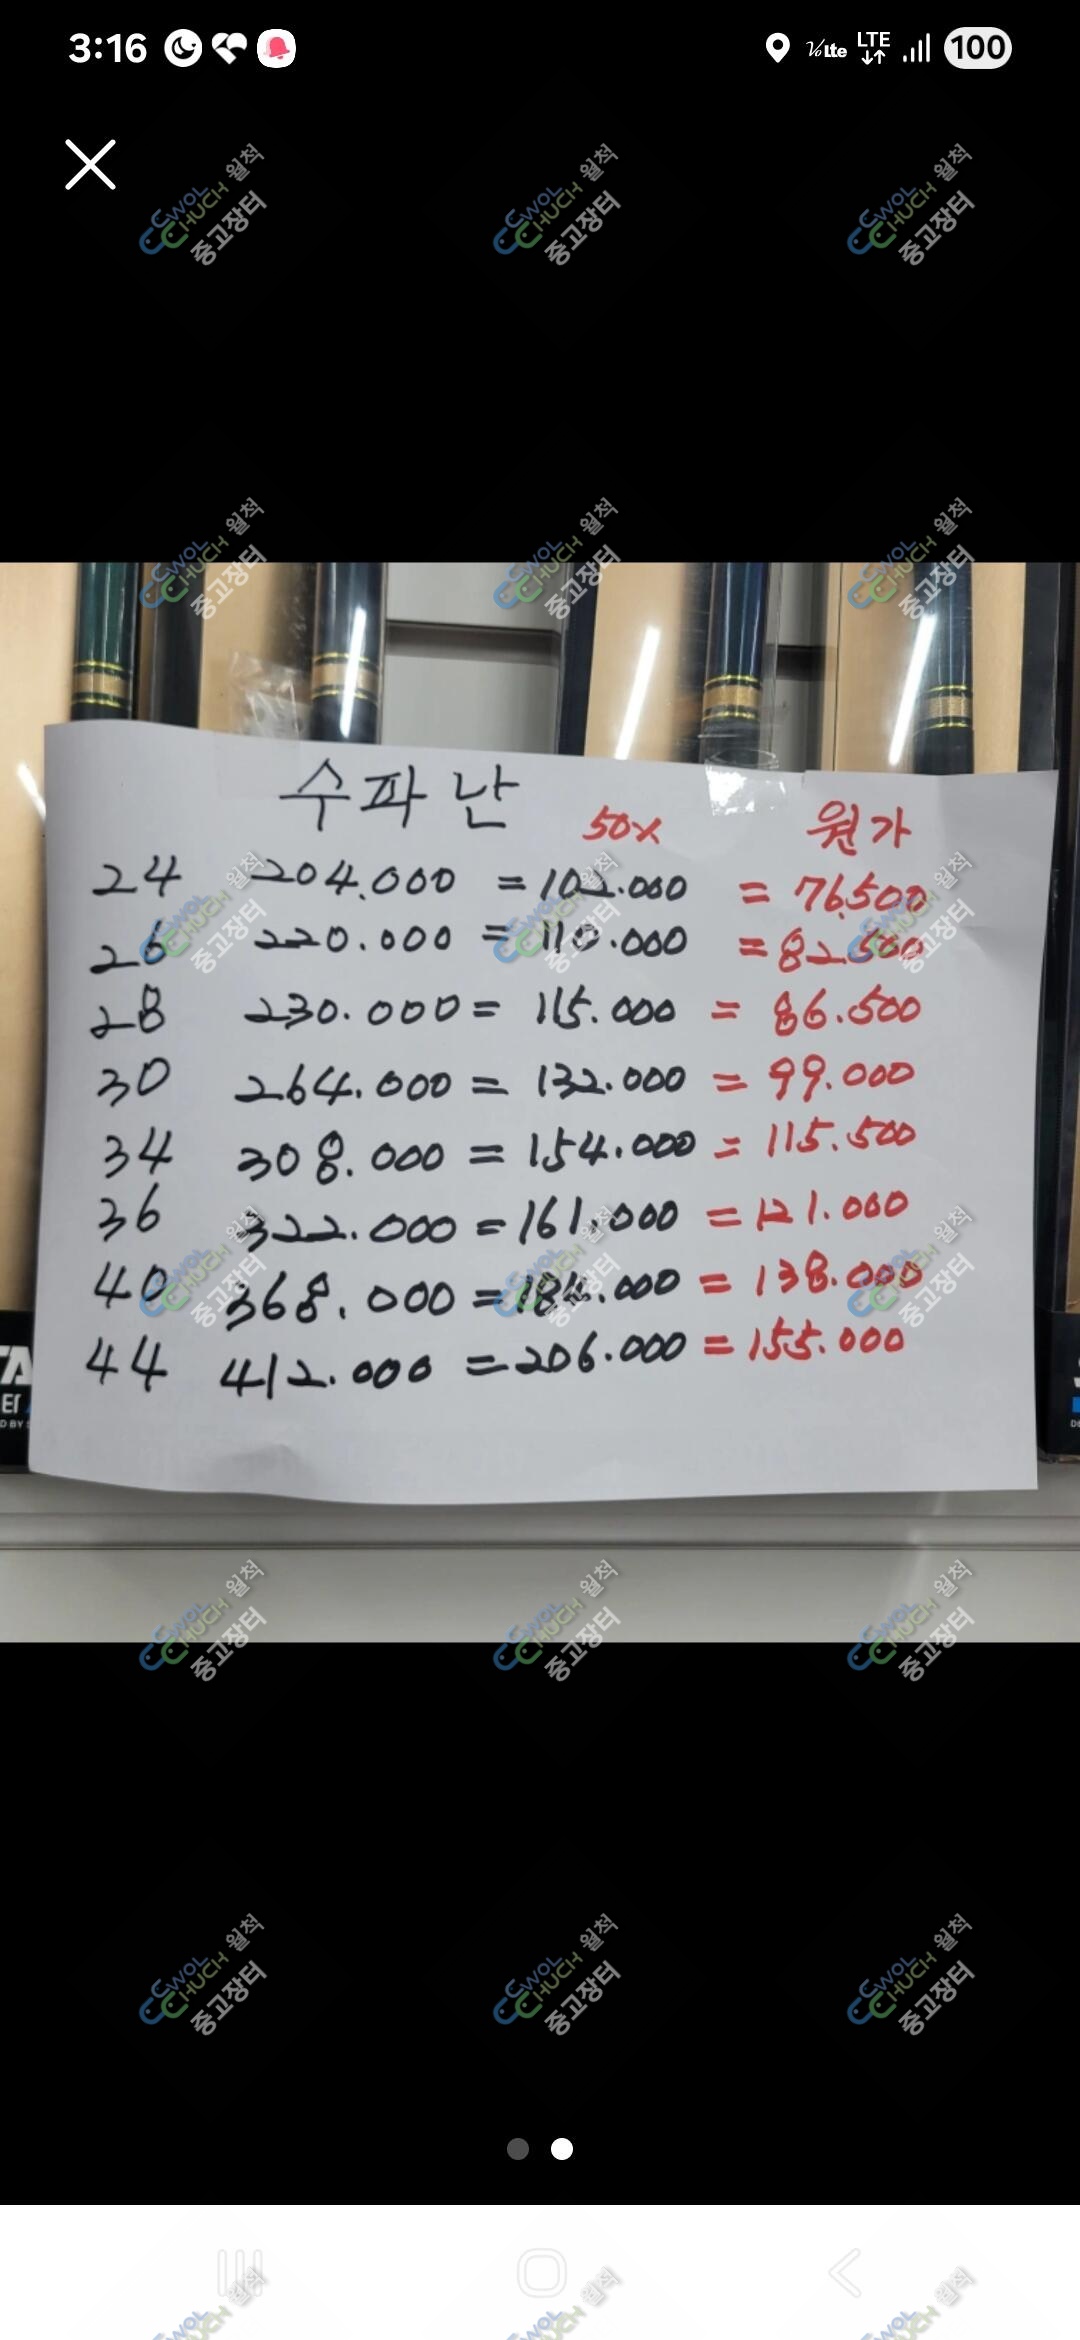 3:16
VoLTE LTE 100
수파 난
50% 원가
24 204.000 = 102.000 = 76.500
26 220.000 = 110.000 = 82.500
28 230.000 = 115.000 = 86.500
30 264.000 = 132.000 = 99.000
34 308.000 = 154.000 = 115.500
36 322.000 = 161.000 = 121.000
40 368.000 = 184.000 = 138.000
44 412.000 = 206.000 = 155.000
CWOL CHUCH 월척 중고장터